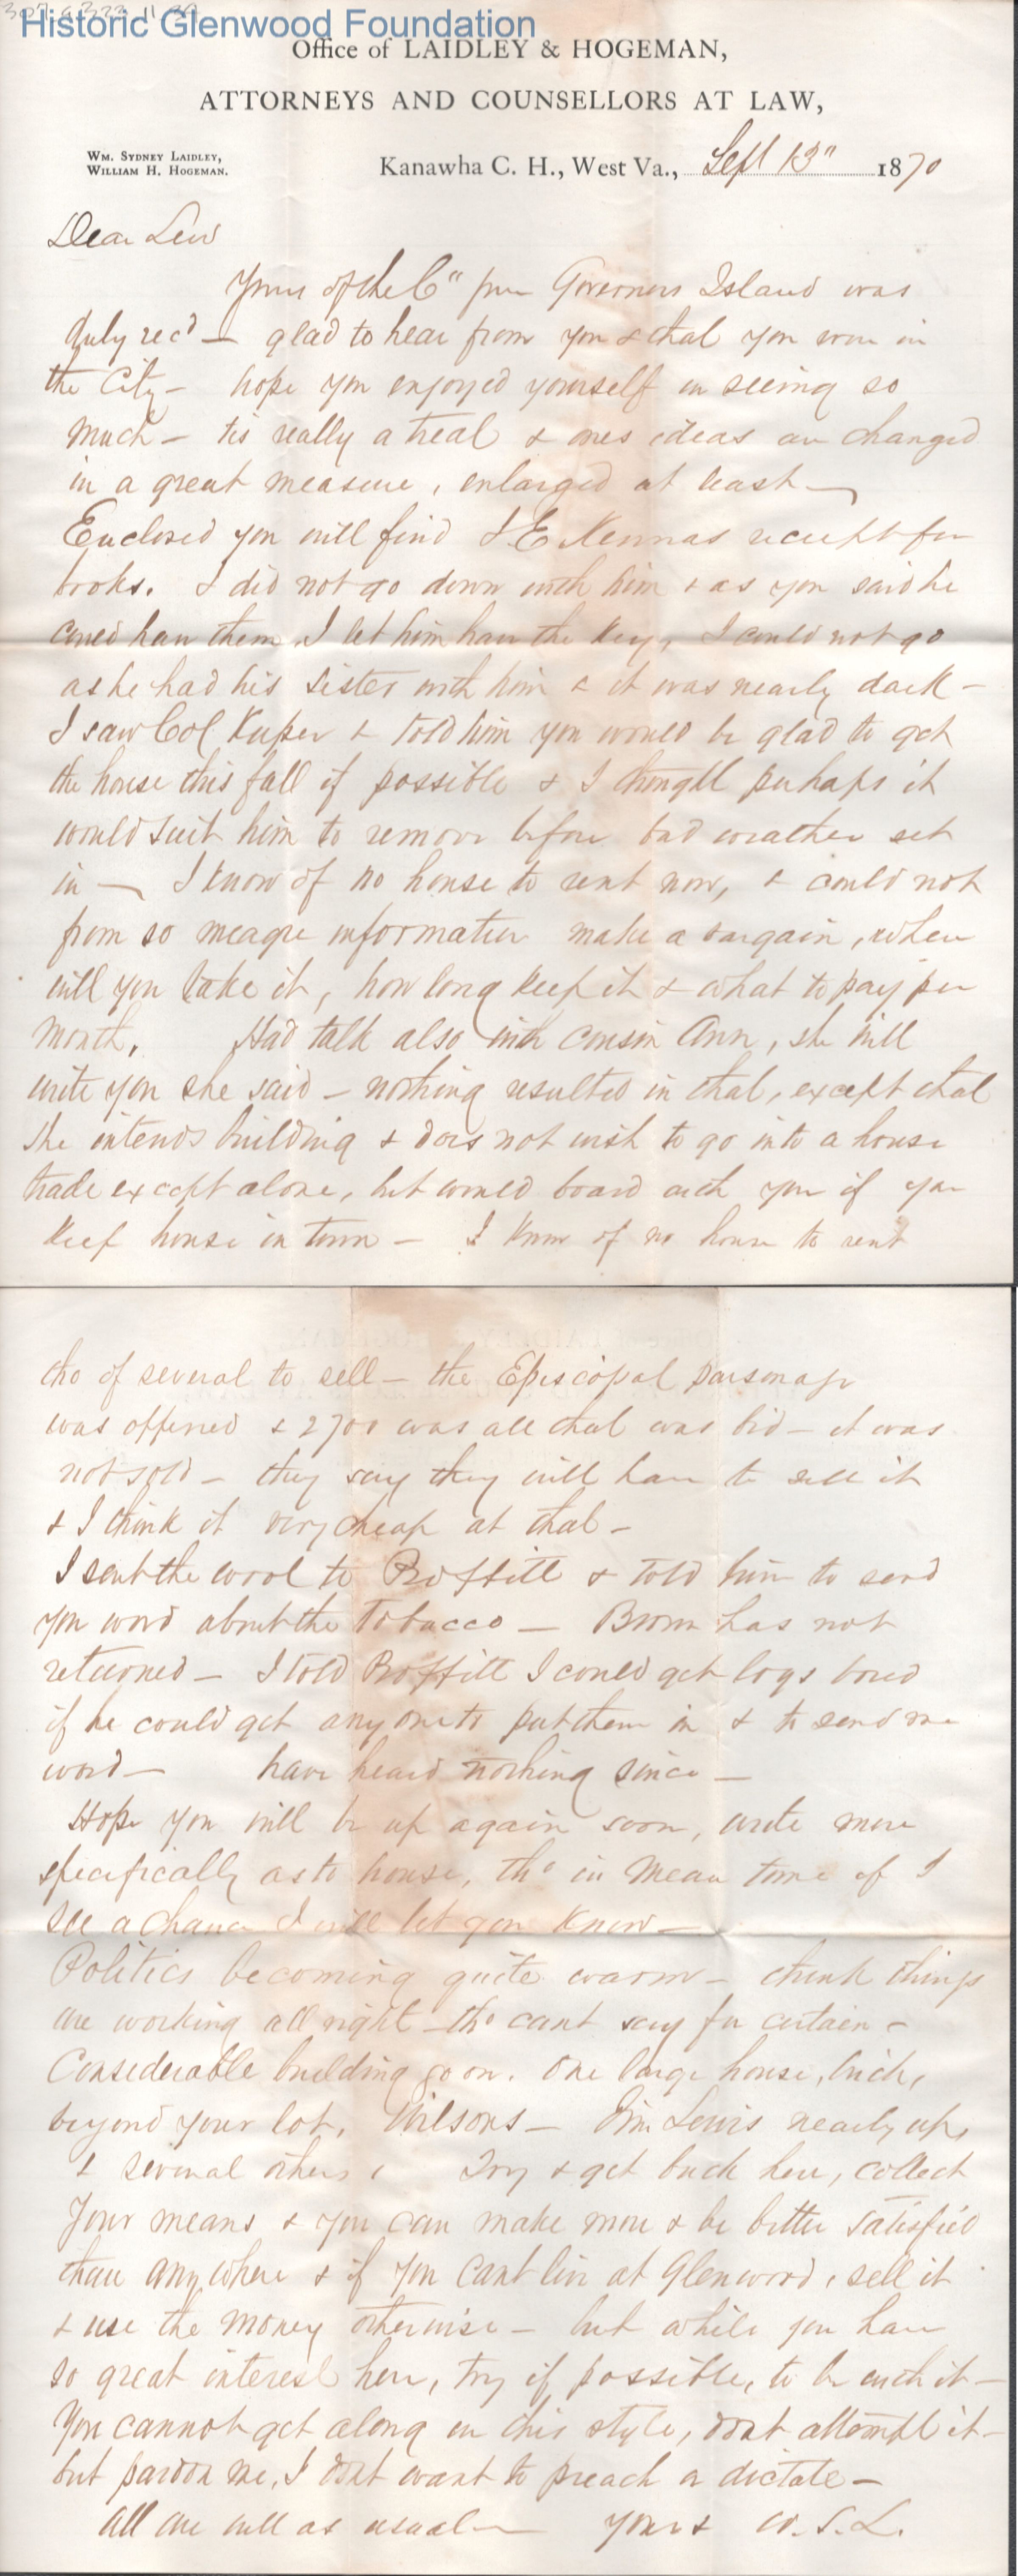 Historic Glenwood Foundation
Office of LAIDLEY & HOGEMAN,
ATTORNEYS AND COUNSELLORS AT LAW,
WM. SYDNEY LAIDLEY,
WILLIAM H. HOGEMAN.
Kanawha C. H., West Va., Sept 13" 1870
Dear Lew
Yours of the 6" from Governors Island was
duly recd — glad to hear from you & that you were in
the City — hope you enjoyed yourself in seeing so
much — tis really a treat & ones ideas are changed
in a great measure, enlarged at least —
Enclosed you will find J E Kennas receipt for
books. I did not go down with him & as you said he
could have them, I let him have the key, I could not go
as he had his sister with him & it was nearly dark —
I saw Col & told him you would be glad to get
the house this fall if possible & I thought perhaps it
would suit him to remove before bad weather set
in — I know of no house to rent now, & could not
from so meagre information make a bargain, when
will you take it, how long keep it & what to pay per
month. Had talk also with cousin Ann, she will
write you she said — nothing resulted in that, except that
she intends building & does not wish to go into a house
trade except alone, but would board with you if you
keep house in town — I know of no house to rent
tho of several to sell — the Episcopal parsonage
was offered & 2700 was all that was bid — it was
not sold — they say they will have to sell it
& I think it very cheap at that —
I sent the wool to Proffitt & told him to send
you word about the Tobacco — Brown has not
returned — I told Proffitt I could get logs bored
if he could get any one to put them in & to send me
word — have heard nothing since —
Hope you will be up again soon, write more
specifically as to house, tho in mean time if I
see a chance I will let you know —
Politics becoming quite warm — think things
are working all right — tho cant say for certain —
Considerable building go on. One large house, brick,
beyond your lot, Wilsons — Jim Lewis nearly up,
& several others. Try & get back here, collect
your means & you can make more & be better satisfied
than any where & if you cant live at Glenwood, sell it
& use the money otherwise — but while you have
so great interest here, try if possible, to be with it —
You cannot get along in this style, dont attempt it —
but pardon me, I dont want to preach or dictate —
All are well as usual — Yours W. S. L.